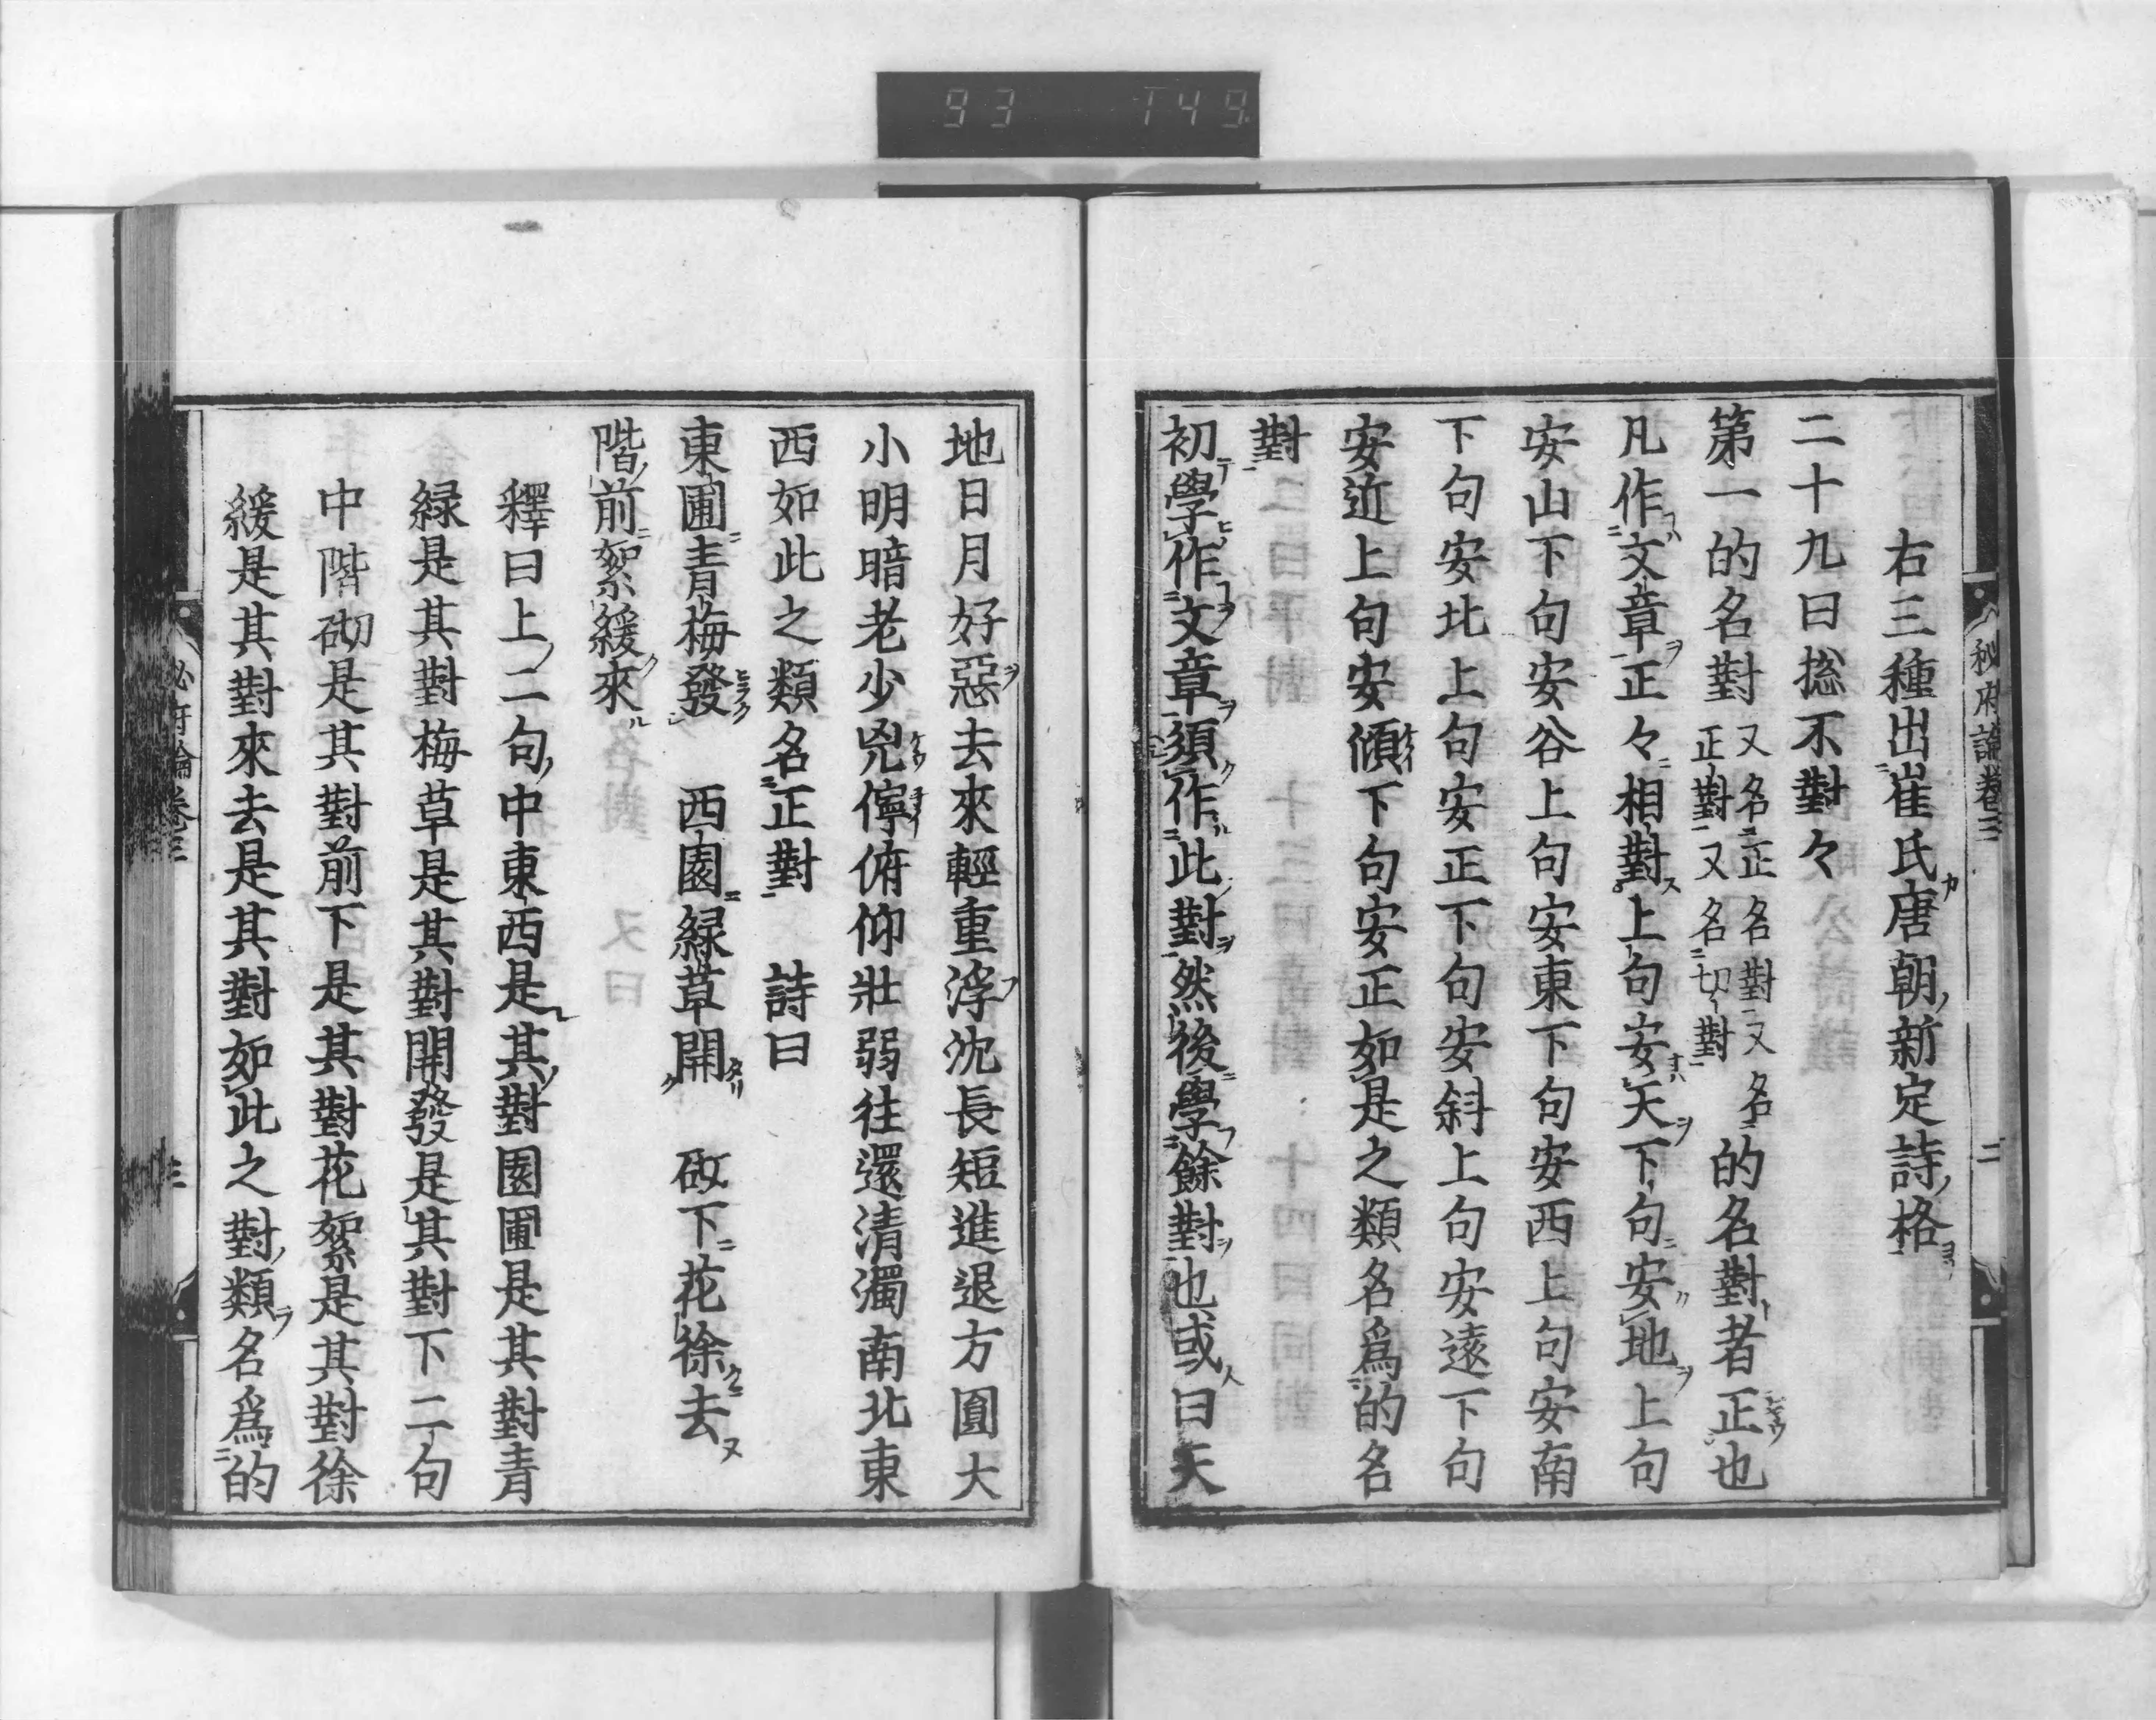 93 149
秘府論卷三 二
右三種出崔氏唐朝新定詩格
二十九曰捴不對々
第一的名對 又名正名對又名正對又名切對 的名對者正也
凡作文章正々相對上句安天下句安地上句
安山下句安谷上句安東下句安西上句安南
下句安北上句安正下句安斜上句安遠下句
安近上句安傾下句安正如是之類名爲的名
對
初學作文章須作此對然後學餘對也或曰天
地日月好惡去來輕重浮沈長短進退方圓大
小明暗老少兇儜俯仰壯弱往還清濁南北東
西如此之類名正對 詩曰
東圃青梅發 西園綠草開 砌下花徐去
階前絮緩來
釋曰上二句中東西是其對園圃是其對青
緑是其對梅草是其對開發是其對下二句
中階砌是其對前下是其對花絮是其對徐
緩是其對來去是其對如此之對類名爲的
秘府論卷三 三